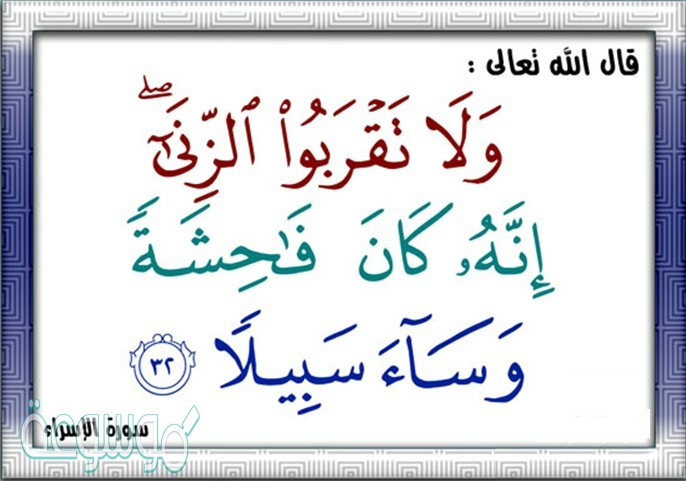 قال الله تعالى :
وَلَا تَقْرَبُوا۟ ٱلزِّنَىٰٓ ۖ
إِنَّهُۥ كَانَ فَـٰحِشَةً
وَسَآءَ سَبِيلًا ٣٢
سورة الإسراء
موسوعة